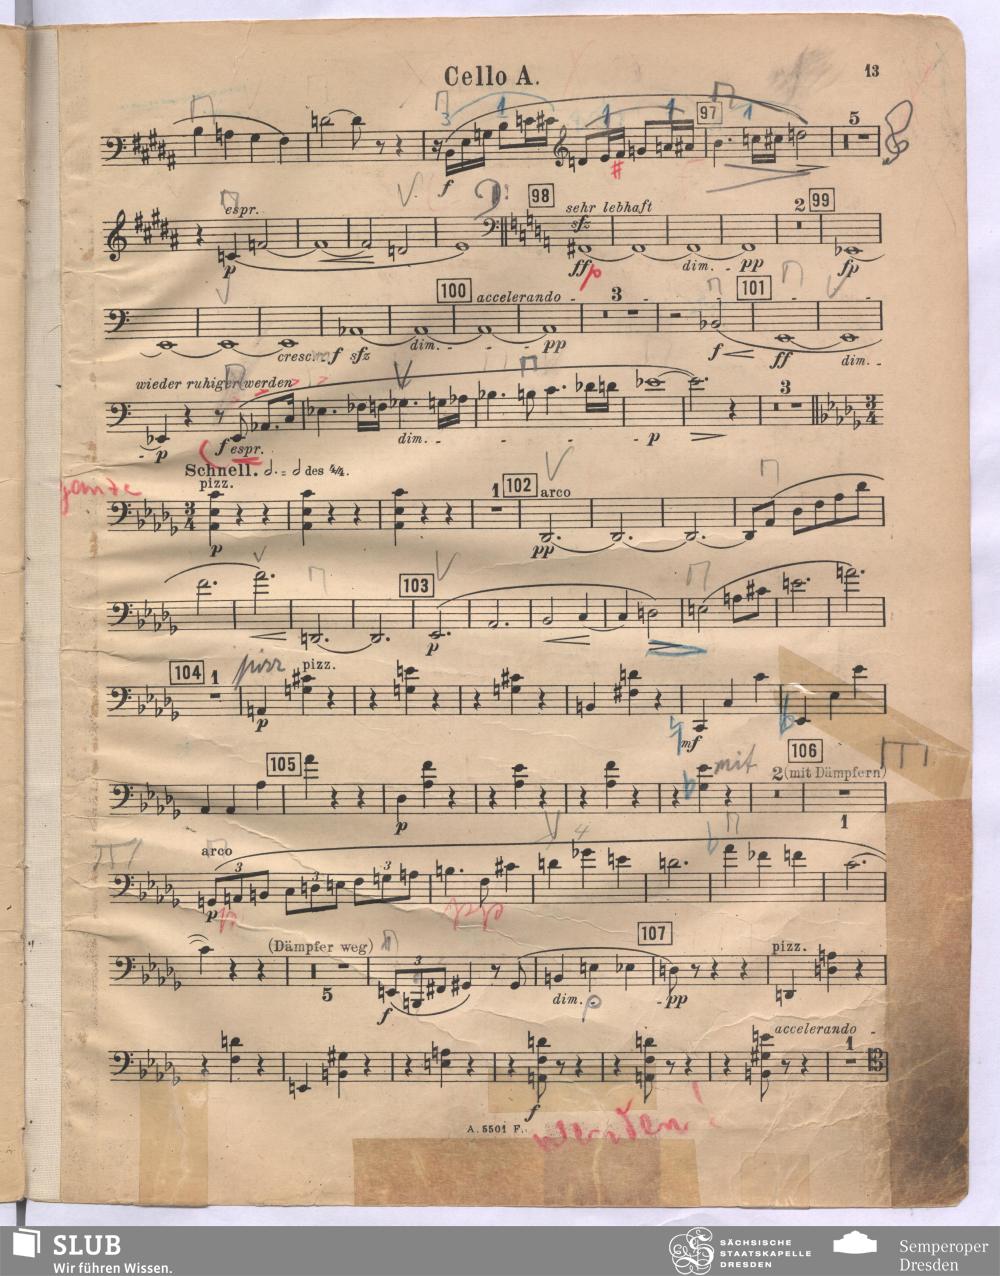 Cello A.
13
3 1 1 1 97 1 5
f
espr. 98 sehr lebhaft 2 99
sfz
p ff p dim. - pp fp
100 accelerando - - 3 - - 101
cresc. - f sfz dim. - - - pp f ff dim. -
wieder ruhiger werden 3
- p f espr. dim. - - - - - p 3/4
Schnell. 𝅗𝅥. = 𝅗𝅥 des 4/4.
pizz. 1 102 arco
3/4
p pp
103
p
104 1 pizz pizz.
p mf
105 mit 2 106 (mit Dämpfern)
p 1
arco 4
3 3 3
p pp
(Dämpfer weg) 107 pizz.
5 3
f dim. p - pp
accelerando -
1
f
A. 5501 F.
wenden!
SLUB
Wir führen Wissen.
SÄCHSISCHE
STAATSKAPELLE
DRESDEN
Semperoper
Dresden